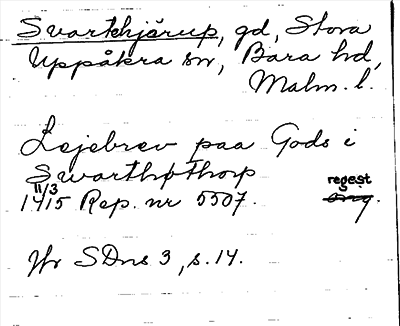 Svartehjärup, gd, Stora
Uppåkra sn, Bara hd,
Malm. l.
Lejebrev paa Gods i
Swarthøthorp
14 11/3 15 Rep. nr 5507. regest
Jfr SDns 3, s. 14.